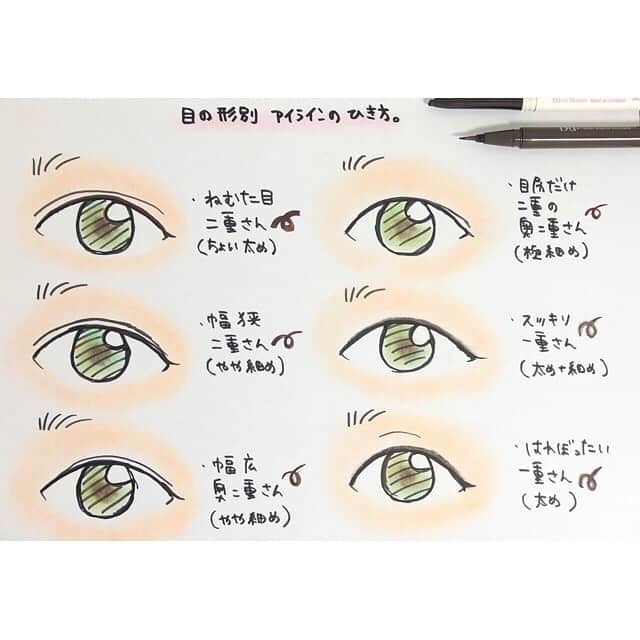 目の形別 アイラインのひき方。
・ねむた目
二重さん
(ちょい太め)
・目尻だけ
二重の
奥二重さん
(極細め)
・幅狭
二重さん
(やや細め)
・スッキリ
一重さん
(太め+細め)
・幅広
奥二重さん
(やや細め)
・はればったい
一重さん
(太め)